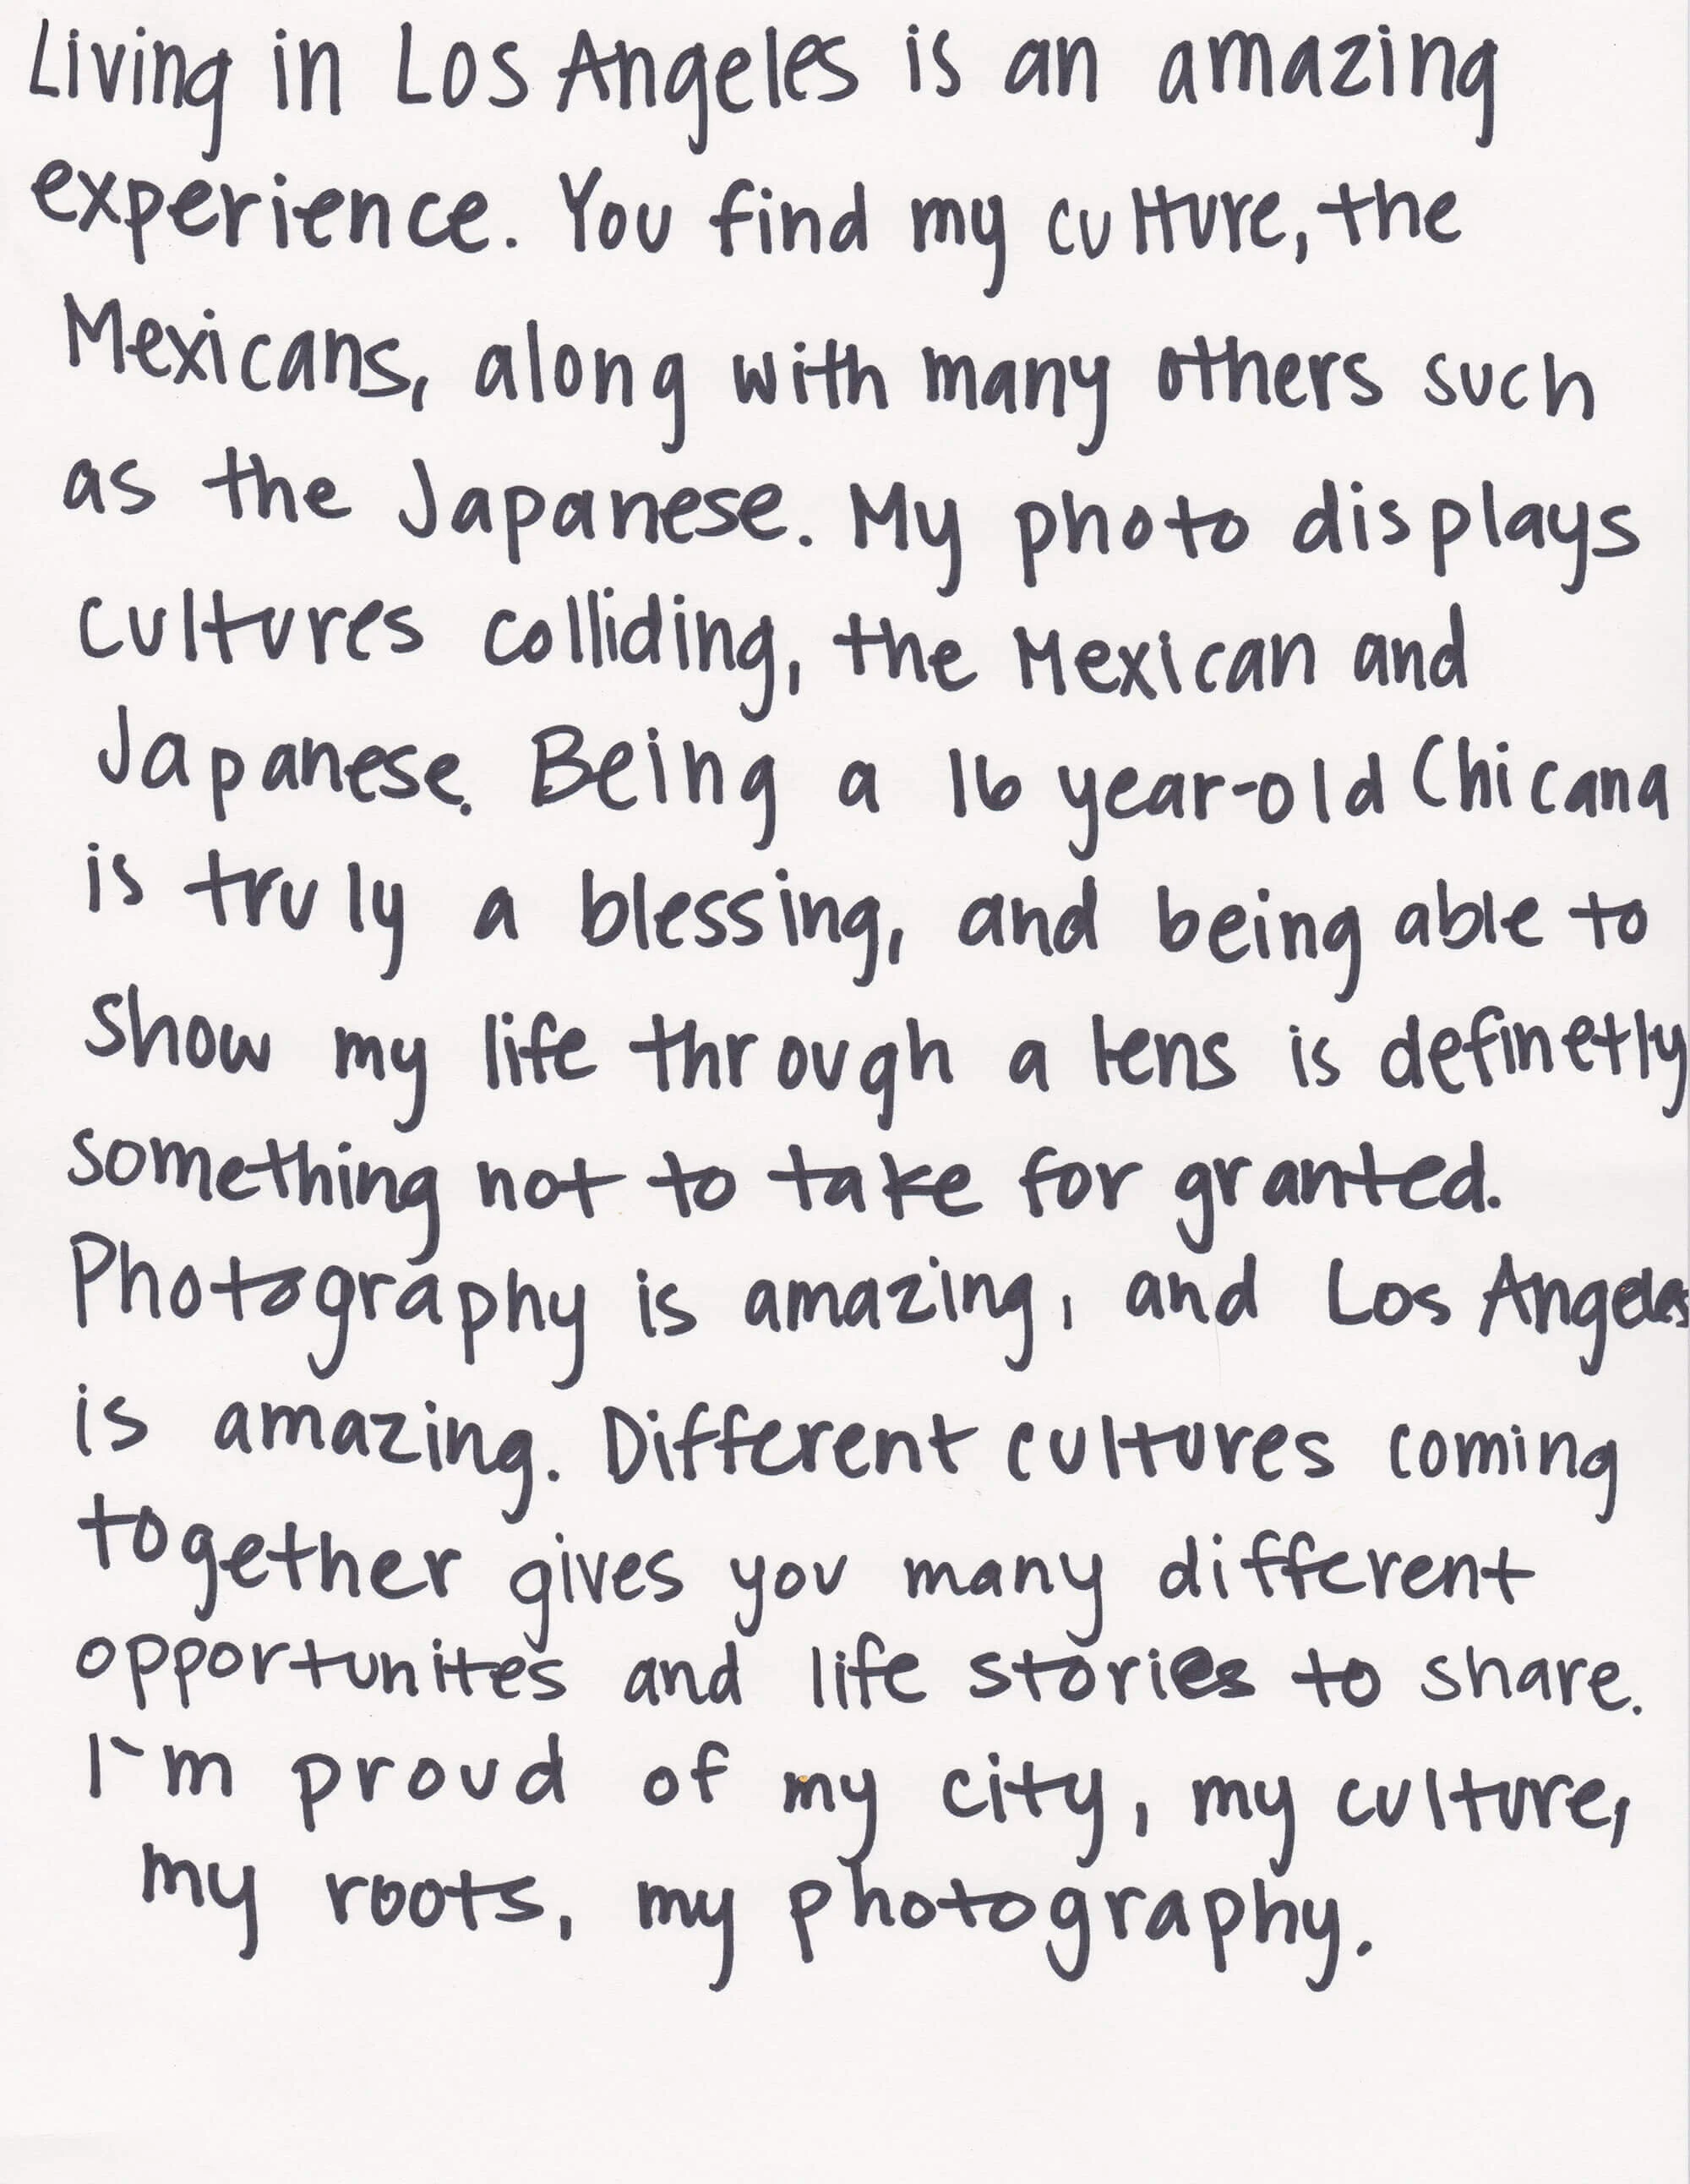 Living in Los Angeles is an amazing
experience. You find my culture, the
Mexicans, along with many others such
as the Japanese. My photo displays
cultures colliding, the Mexican and
Japanese. Being a 16 year-old Chicana
is truly a blessing, and being able to
show my life through a lens is definetly
something not to take for granted.
Photography is amazing, and Los Angeles
is amazing. Different cultures coming
together gives you many different
opportunites and life stories to share.
I`m proud of my city, my culture,
my roots, my photography.